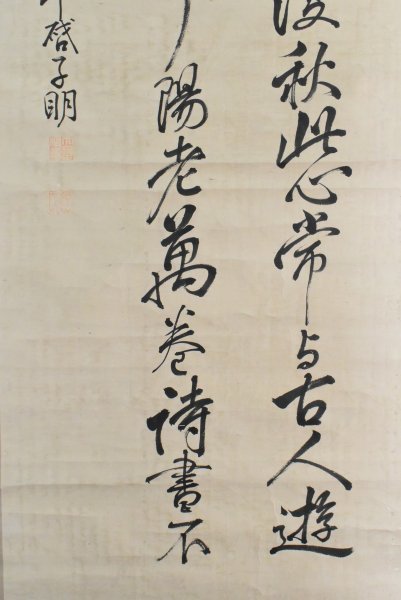 秋此心常与古人遊
陽老萬巻詩書不
啓子明